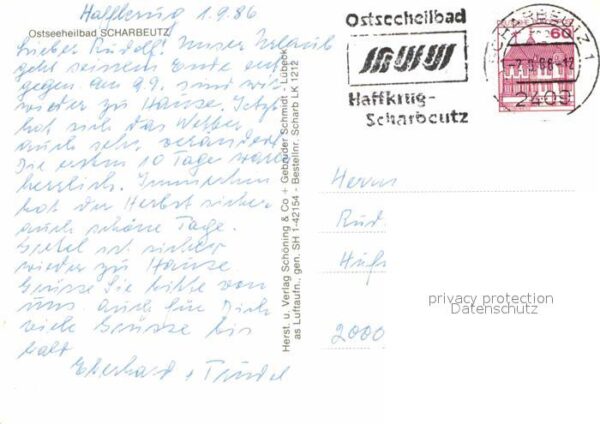 Haffkrug 7.9.86
Ostseeheilbad SCHARBEUTZ
Lieber Rudolf! Unser Urlaub
geht seinem Ende ent-
gegen. Am 9.9. sind wir
wieder zu Hause. Jetzt
hat sich das Wetter
auch sehr verändert
Die ersten 10 Tage waren
herrlich. Immerhin
hat der Herbst sicher
auch schöne Tage.
ist sicher
wieder zu Hause.
Grüsse Sie bitte von
uns. auch für Dich
viele Grüsse bis
bald
Eberhard + Trudel
Herst. u. Verlag Schöning & Co + Gebrüder Schmidt - Lübeck
as Luftaufn., gen. SH 1-42154 - Bestellnr. Scharb LK 1212
Ostseeheilbad
Haffkrug-
Scharbeutz
SCHARBEUTZ 1
2409
60
Herrn
Rud
2000
privacy protection
Datenschutz